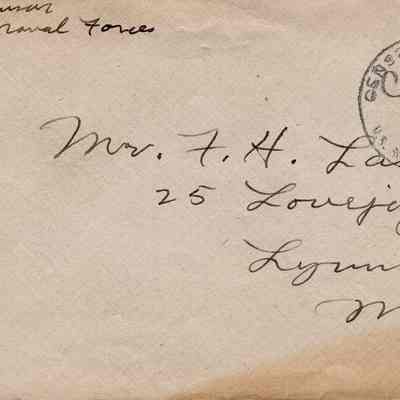 Naval Forces
Mr. F. H. Las
25 Lovejo
Lynn
M
U.S. N